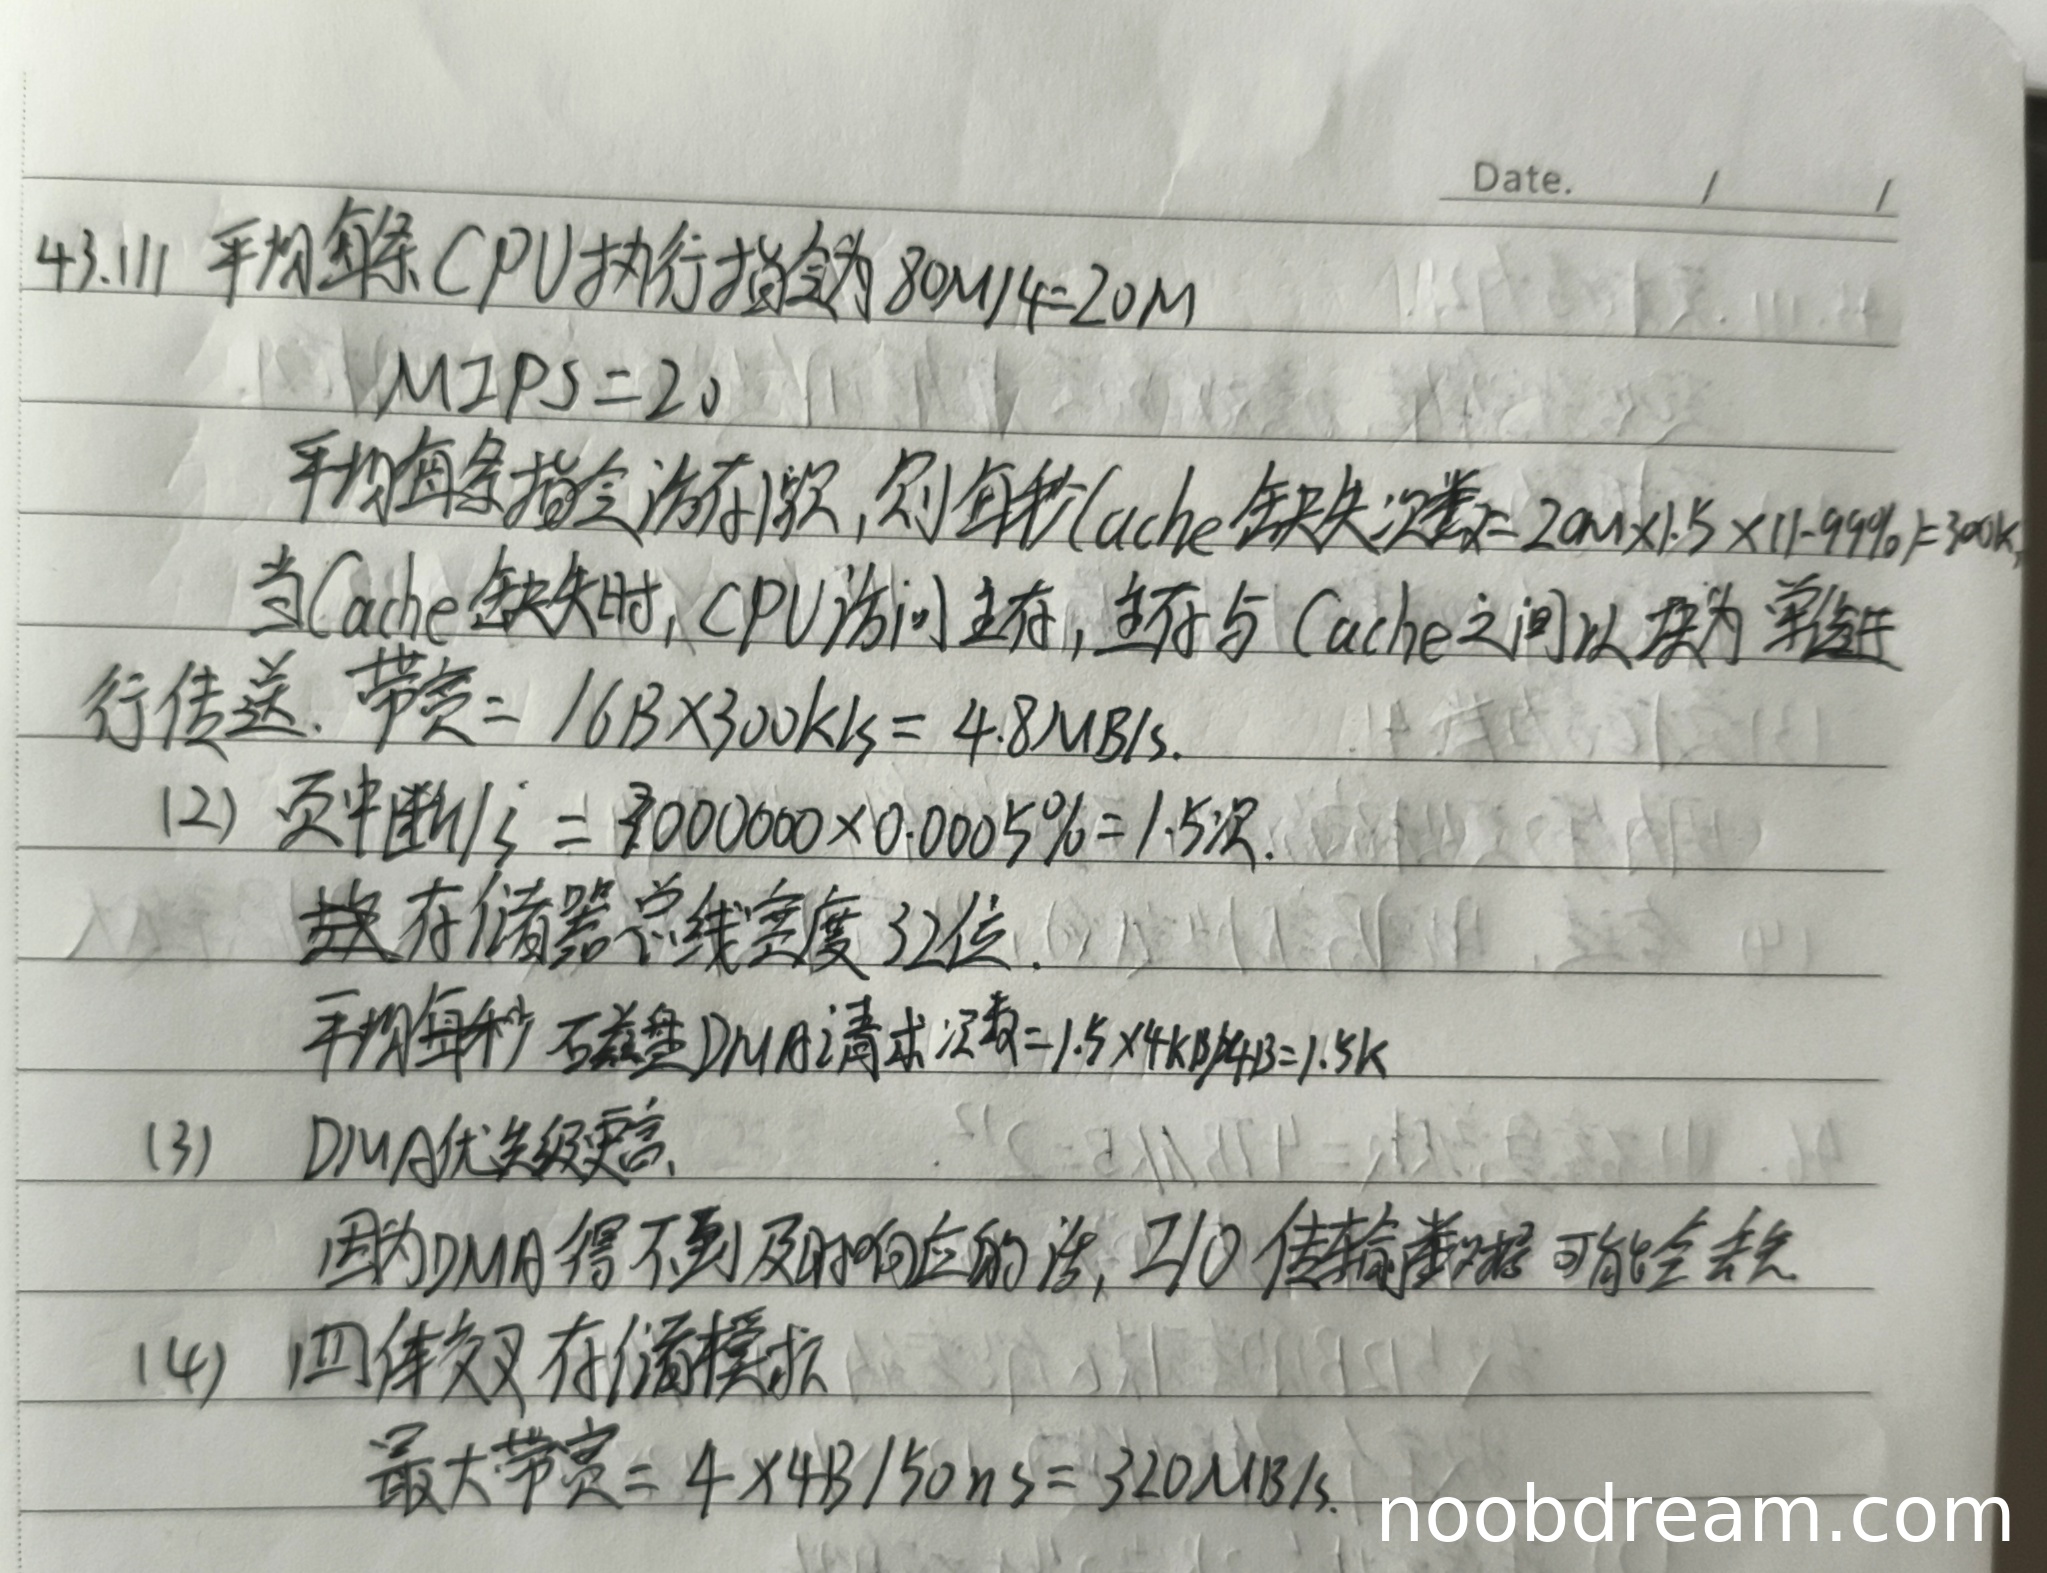 Date. / /
43.(1) 平均每条CPU执行指令为80M/4=20M
MIPS=20
平均每条指令访存1.5次,则每秒Cache缺失次数=20M×1.5×(1-99%)=300K,
当Cache缺失时,CPU访问主存,主存与Cache之间以块为单位进
行传送.带宽=16B×300K/s=4.8MB/s.
(2) 页中断/s = 300000×0.0005%=1.5次.
存储器总线宽度32位.
平均每秒磁盘DMA请求次数=1.5×4KB/4B=1.5K
(3) DMA优先级更高、
因为DMA得不到及时响应的话,I/O传输数据可能会丢失
(4) 四体交叉存储模式
最大带宽=4×4B/50ns=320MB/s.
noobdream.com